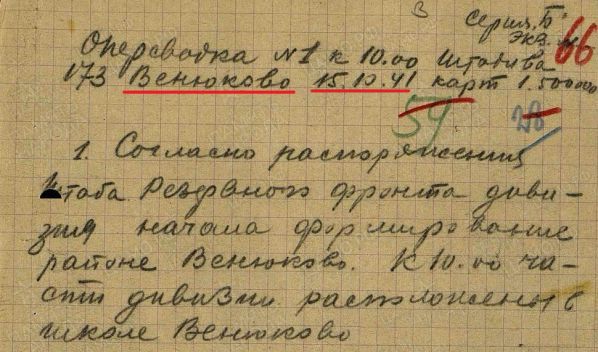 в
Серия "Б"
Экз.
66
Оперсводка №1 к 10.00 Штадива
173 Венюково 15.10.41 карт 1.500000
54 28
1. Согласно распоряжения
штаба Резервного фронта диви-
зия начала формирование
районе Венюково. К 10.00 ча-
сти дивизии расположены в
школе Венюково